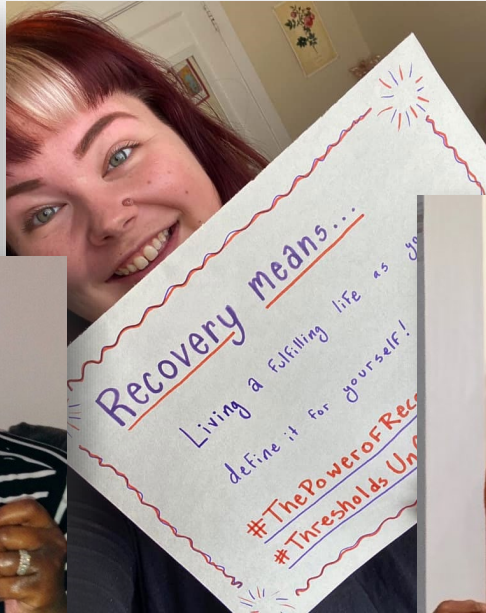 Recovery means...
Living a fulfilling life as yo
define it for yourself!
#ThePowerOFReco
#Thresholds Un